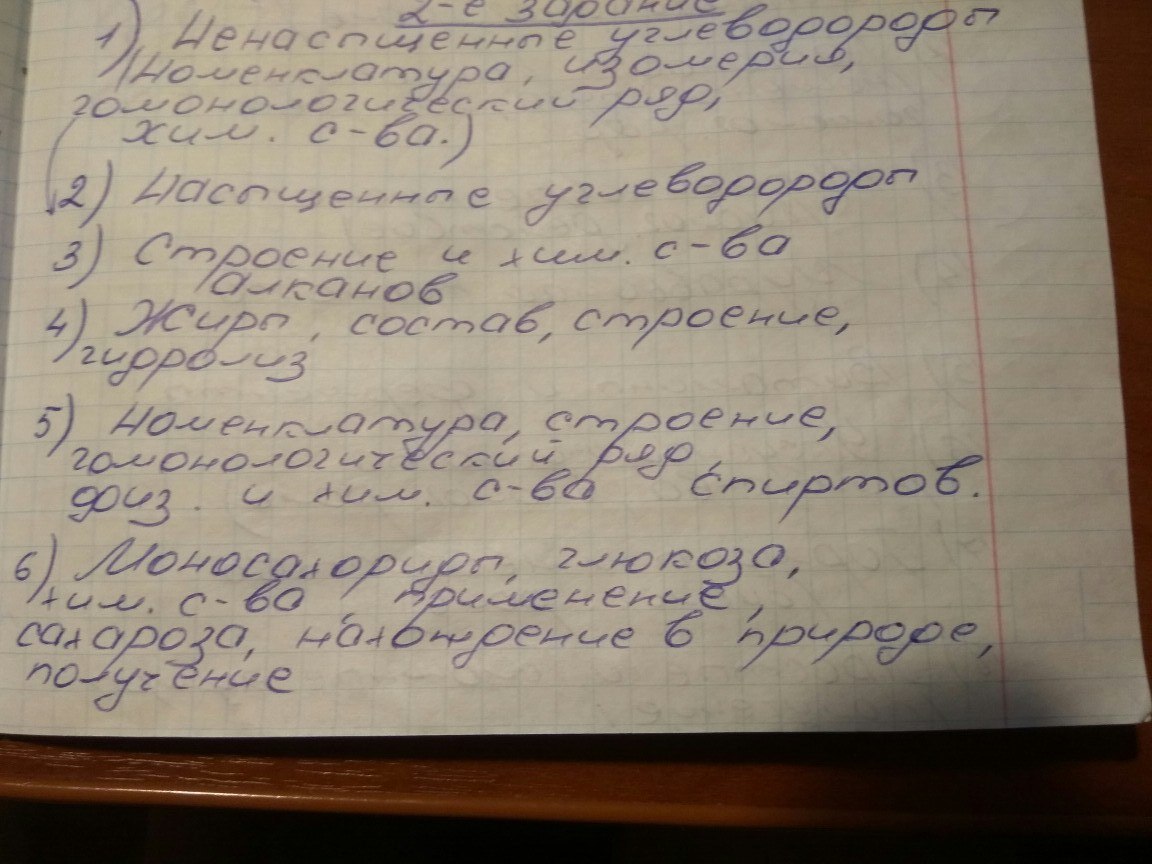 2-е задание
1) Ненасыщенные углеводороды
(Номенклатура, изомерия,
гомонологический ряд,
хим. с-ва.)
2) Насыщенные углеводороды
3) Строение и хим. с-ва
алканов
4) Жиры, состав, строение,
гидролиз
5) Номенклатура, строение,
гомонологический ряд,
физ. и хим. с-ва спиртов.
6) Моносахориды, глюкоза,
хим. с-ва, применение,
сахароза, нахождение в природе,
получение